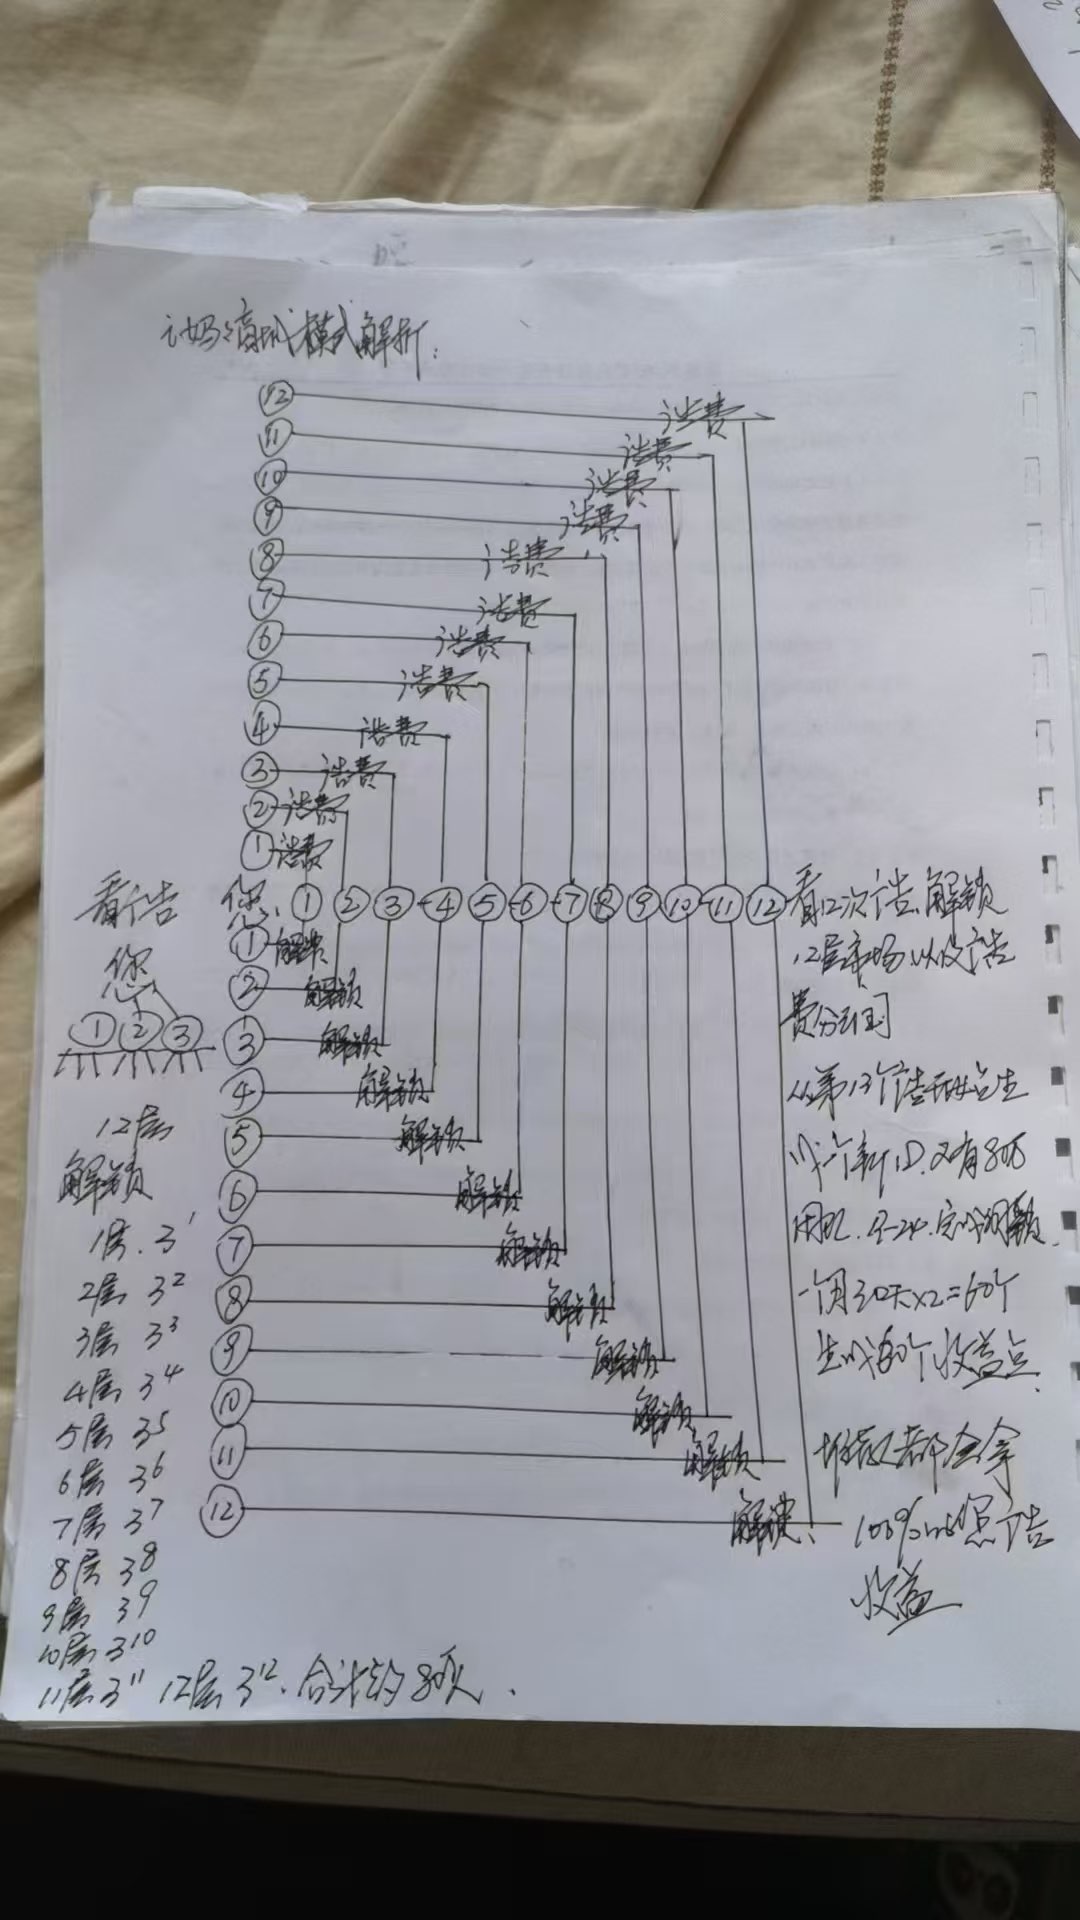 商城模式解析:
⑫ 广告费
⑪ 广告费
⑩ 广告费
⑨ 广告费
⑧ 广告费
⑦ 广告费
⑥ 广告费
⑤ 广告费
④ 广告费
③ 广告费
② 广告费
① 广告费
看广告
您
① ② ③
12层
解锁
1层. 3¹
2层 3²
3层 3³
4层 3⁴
5层 3⁵
6层 3⁶
7层 3⁷
8层 3⁸
9层 3⁹
10层 3¹⁰
11层 3¹¹ 12层 3¹². 合计约80万人.
您 ① ② ③ ④ ⑤ ⑥ ⑦ ⑧ ⑨ ⑩ ⑪ ⑫
① 解锁
② 解锁
③ 解锁
④ 解锁
⑤ 解锁
⑥ 解锁
⑦ 解锁
⑧ 解锁
⑨ 解锁
⑩ 解锁
⑪ 解锁
⑫ 解锁
看12次广告.解锁
12层市场以及广告
费分
从第13个广告开始生
成一个新ID.又有80万
用户.
一个月30天×2=60个
生成60个收益点
都会拿
100%的 广告
收益